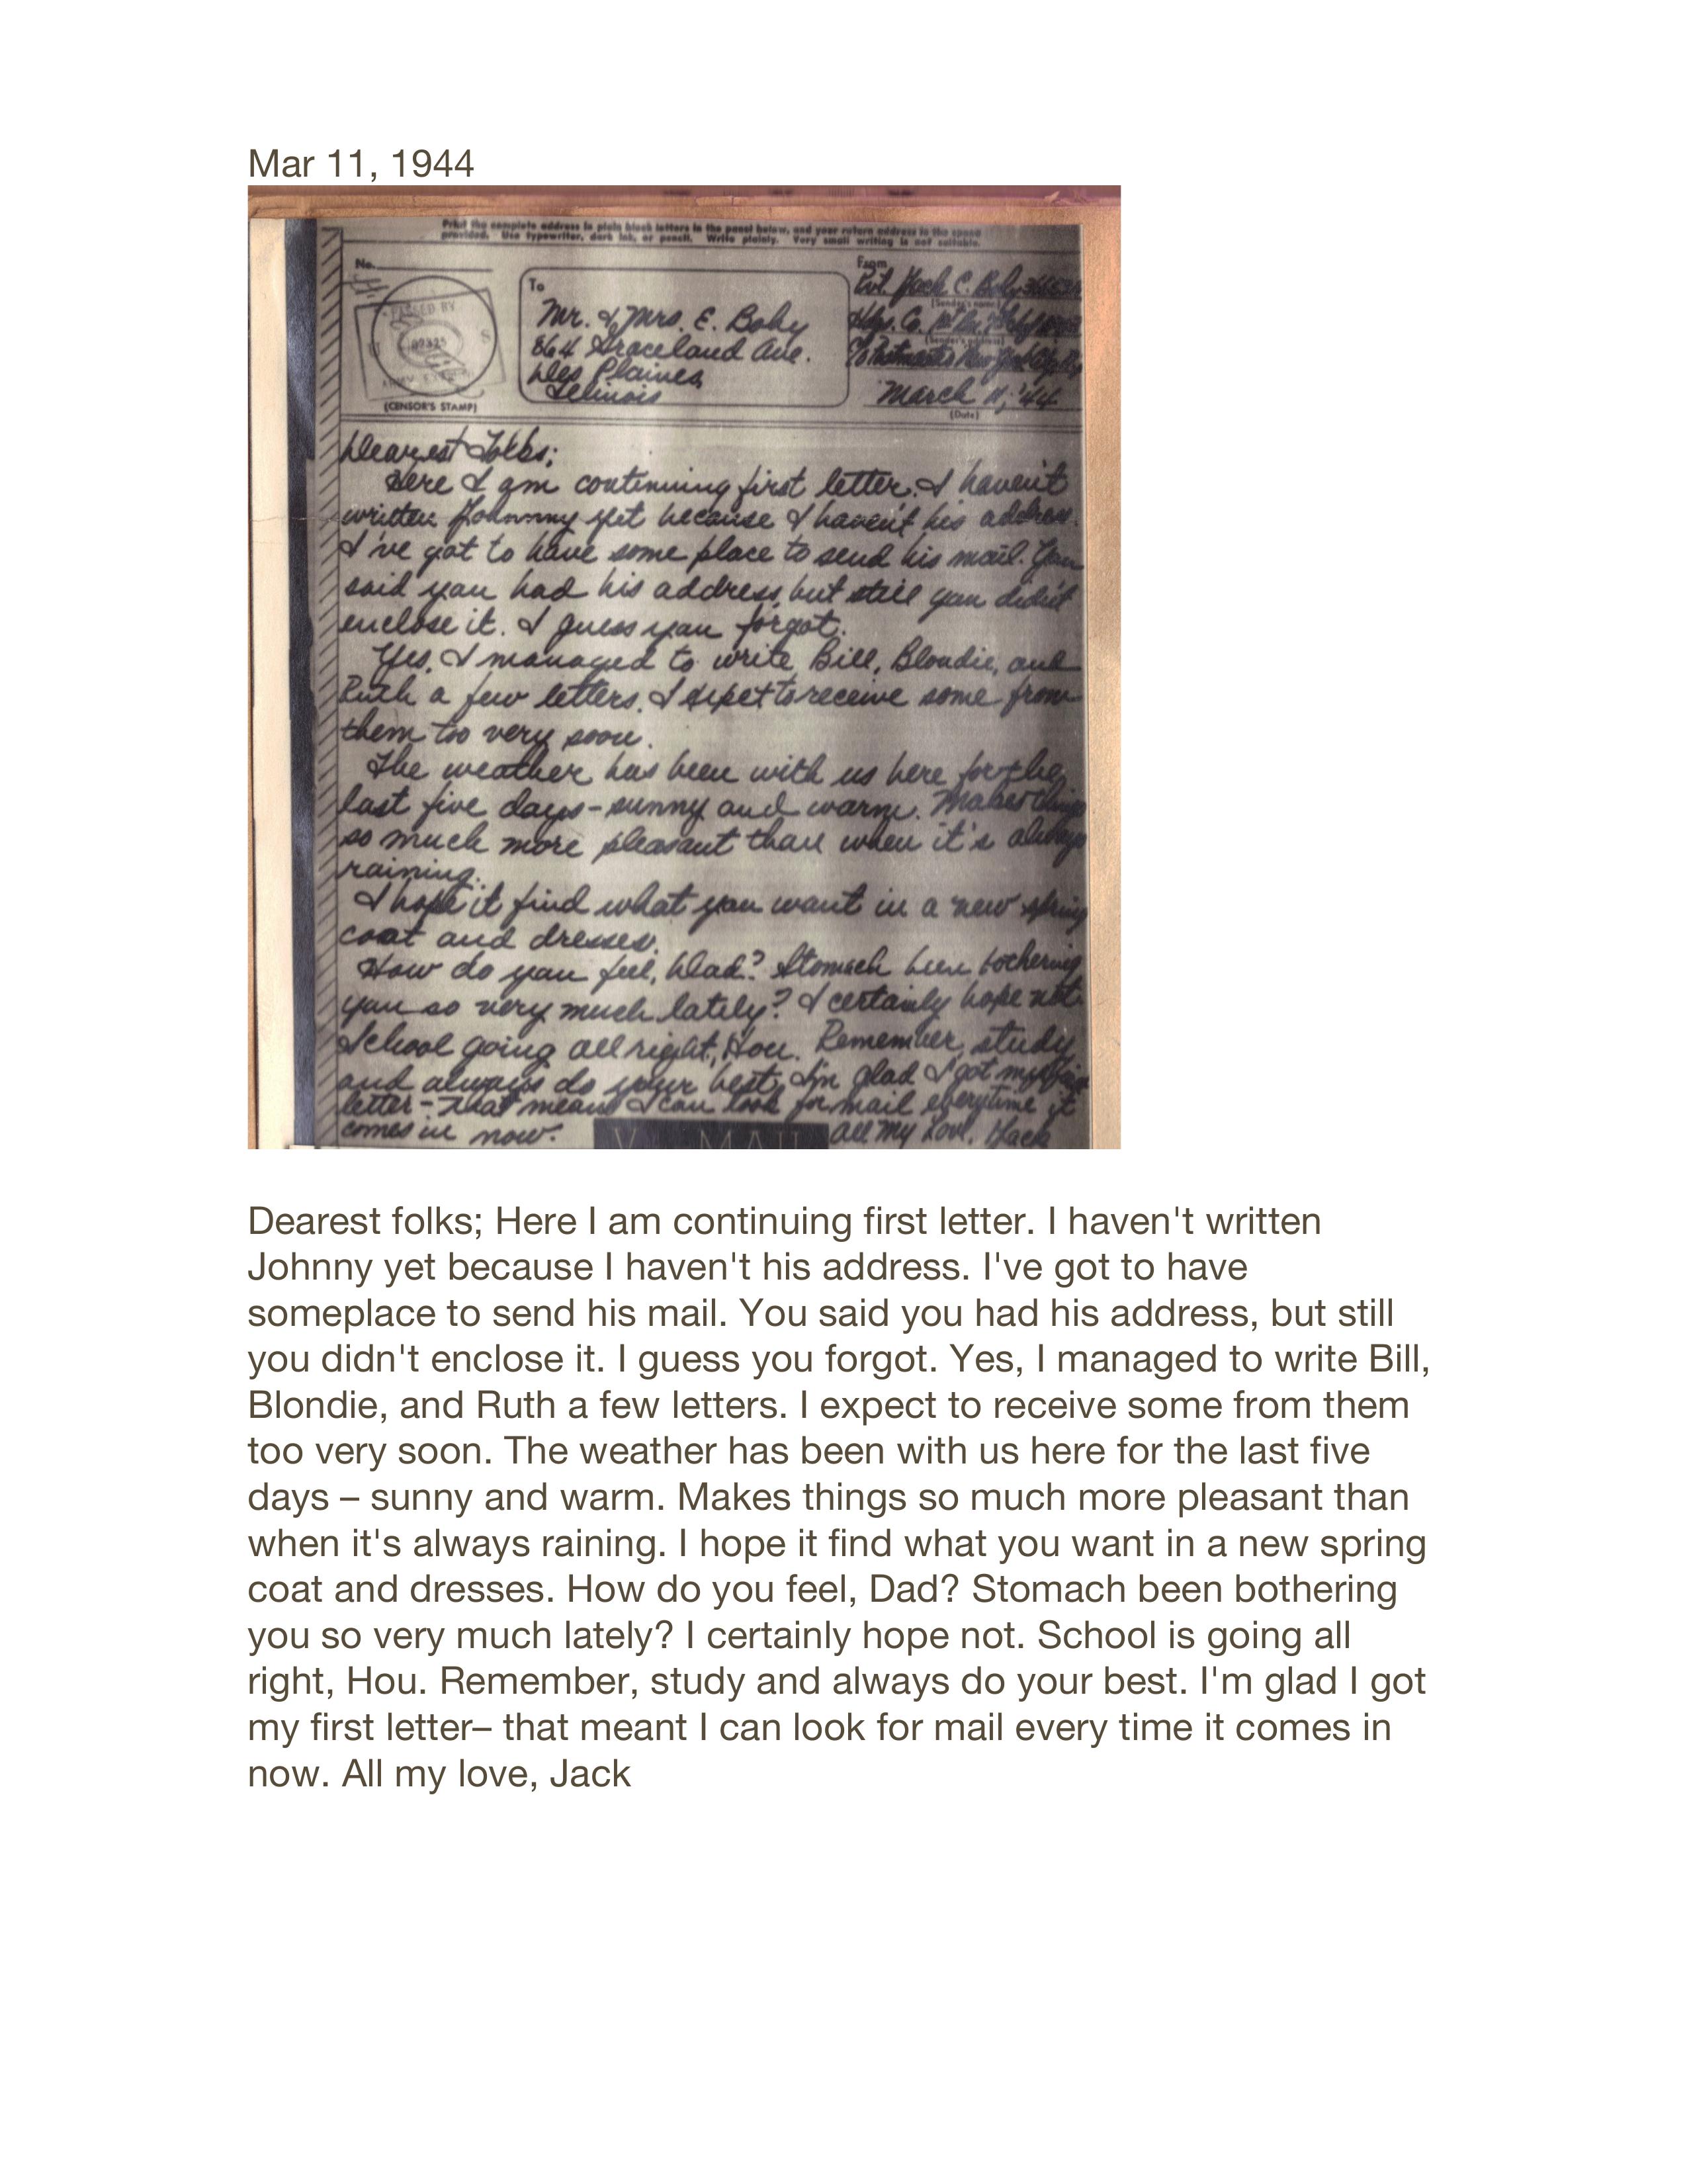 Mar 11, 1944
Print the complete address in plain block letters in the panel below, and your return address in the space
provided. Use typewriter, dark ink, or pencil. Write plainly. Very small writing is not suitable.
No.
From
To
Pvt. Jack C.
PASSED BY
(Sender's name)
Mr. & Mrs. E. Boby
Hdqs. Co.
(Sender's address)
864 Graceland Ave.
Des Plaines,
Illinois
March 11, '44
(CENSOR'S STAMP)
(Date)
Dearest Folks;
Here I am continuing first letter. I haven't
written Johnny yet because I haven't his address.
I've got to have some place to send his mail. You
said you had his address, but still you didn't
enclose it. I guess you forgot.
Yes, I managed to write Bill, Blondie, and
Ruth a few letters. I expet to receive some from
them too very soon.
The weather has been with us here for the
last five days - sunny and warm. Makes things
so much more pleasant than when it's always
raining.
I hope it find what you want in a new spring
coat and dresses.
How do you feel, Dad? Stomach been bothering
you so very much lately? I certainly hope not.
School going all right, Hou. Remember, study
and always do your best. I'm glad I got my first
letter - that means I can look for mail everytime it
comes in now. All my Love, Jack
V - MAIL
Dearest folks; Here I am continuing first letter. I haven't written
Johnny yet because I haven't his address. I've got to have
someplace to send his mail. You said you had his address, but still
you didn't enclose it. I guess you forgot. Yes, I managed to write Bill,
Blondie, and Ruth a few letters. I expect to receive some from them
too very soon. The weather has been with us here for the last five
days – sunny and warm. Makes things so much more pleasant than
when it's always raining. I hope it find what you want in a new spring
coat and dresses. How do you feel, Dad? Stomach been bothering
you so very much lately? I certainly hope not. School is going all
right, Hou. Remember, study and always do your best. I'm glad I got
my first letter– that meant I can look for mail every time it comes in
now. All my love, Jack